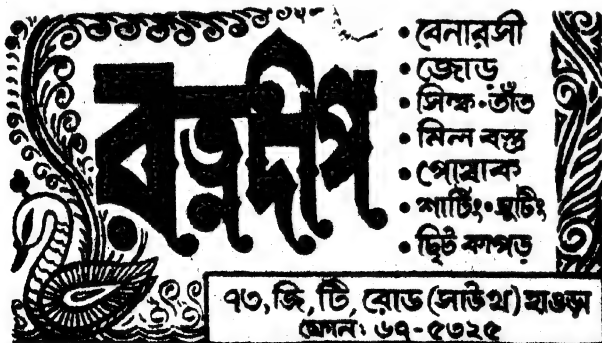 রত্নদীপ
• বেনারসী
• জোড়
• সিল্ক • তাঁত
• মিল বস্ত্র
• পোষাক
• শার্টিং • সুটিং
• ছিট কাপড়
৭৩, জি, টি, রোড (সাউথ) হাওড়া
ফোন: ৬৭-৫৩২৫